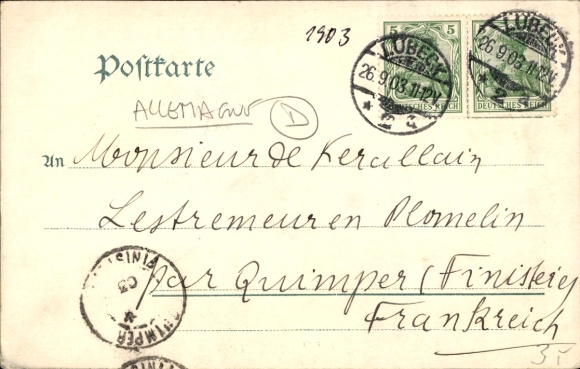 1903
5
LÜBECK
26.9.03.11-12V.
* 2 q
DEUTSCHES REICH
LÜBECK
26.9.03.11-12V.
DEUTSCHES REICH
Postkarte
ALLEMAGNE D
An Monsieur de Kerallain
Lestremeur en Plomelin
par Quimper (Finistère)
Frankreich
QUIMPER
FINIST
03